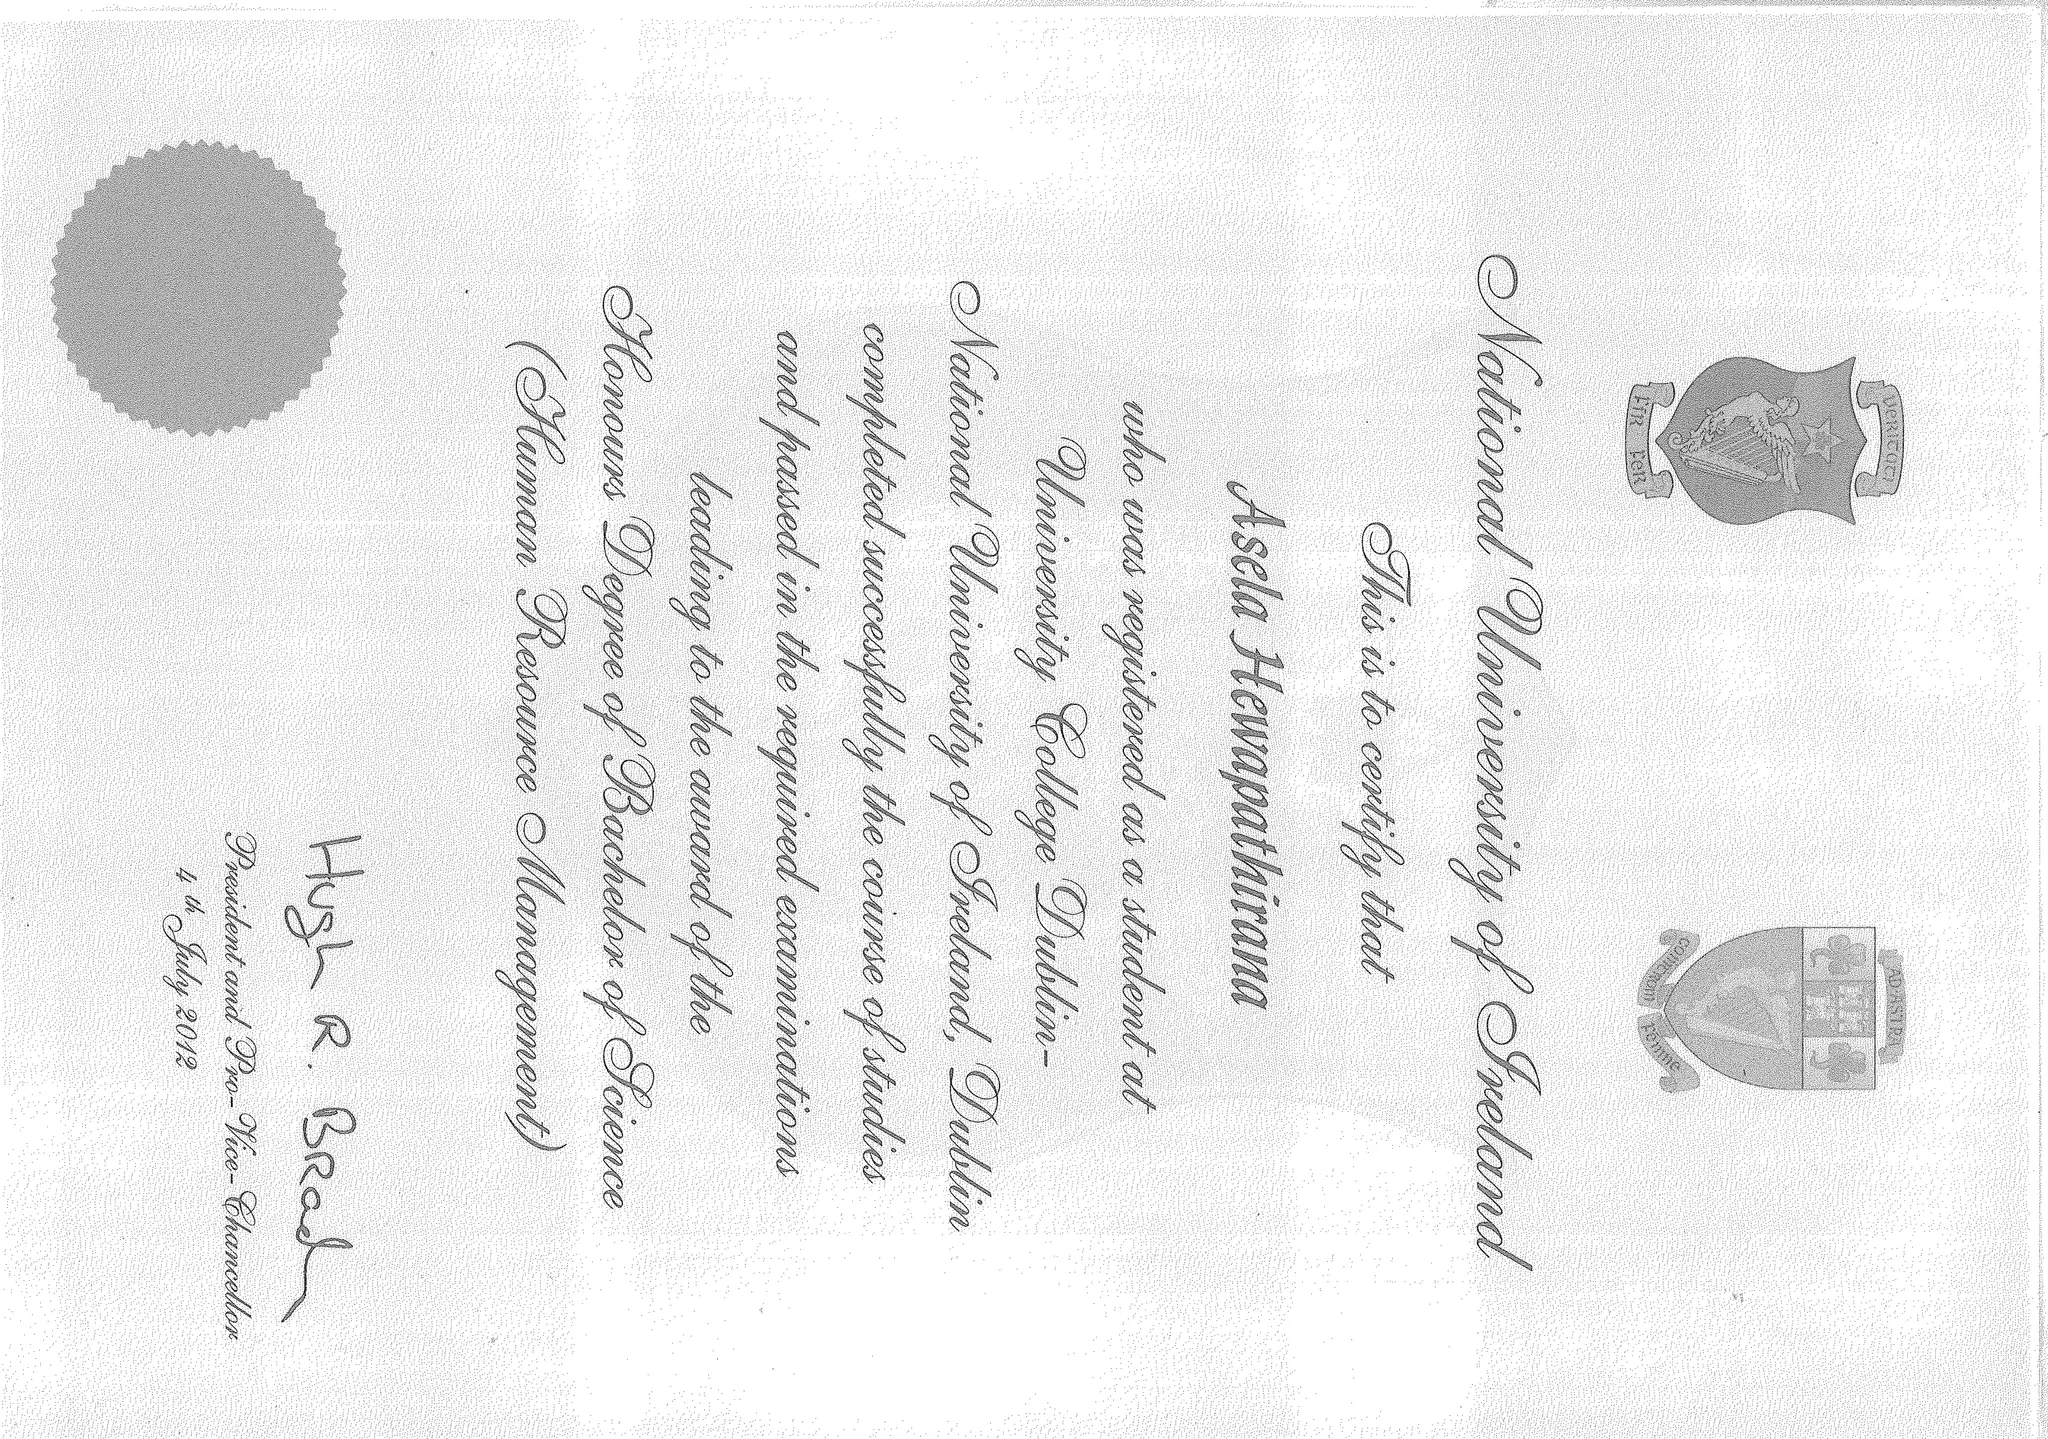 AD ASTRA
COMTROM FÉINNE
FÍR FER
National University of Ireland
This is to certify that
Asela Hewapathirana
who was registered as a student at
University College Dublin-
National University of Ireland, Dublin
completed successfully the course of studies
and passed in the required examinations
leading to the award of the
Honours Degree of Bachelor of Science
(Human Resource Management)
Hugh R. Brady
President and Pro-Vice-Chancellor
4th July 2012